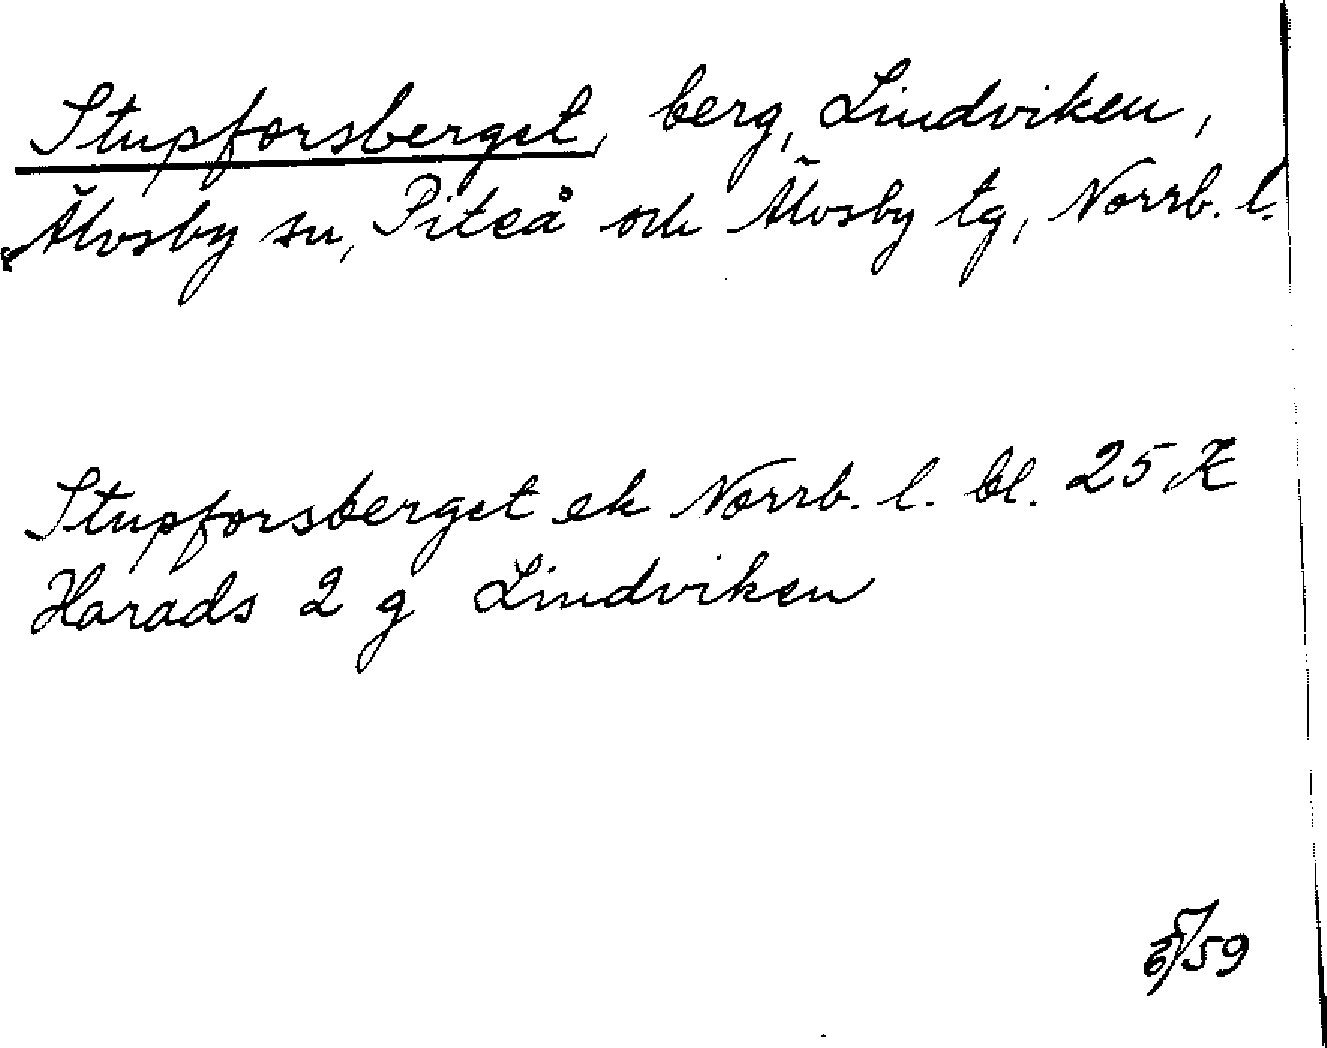 Stupforsberget, berg, Lindviken,
Älvsby sn, Piteå och Älvsby tg, Norrb. l.
Stupforsberget ek Norrb. l. bl. 25 K
Harads 2 g Lindviken
59